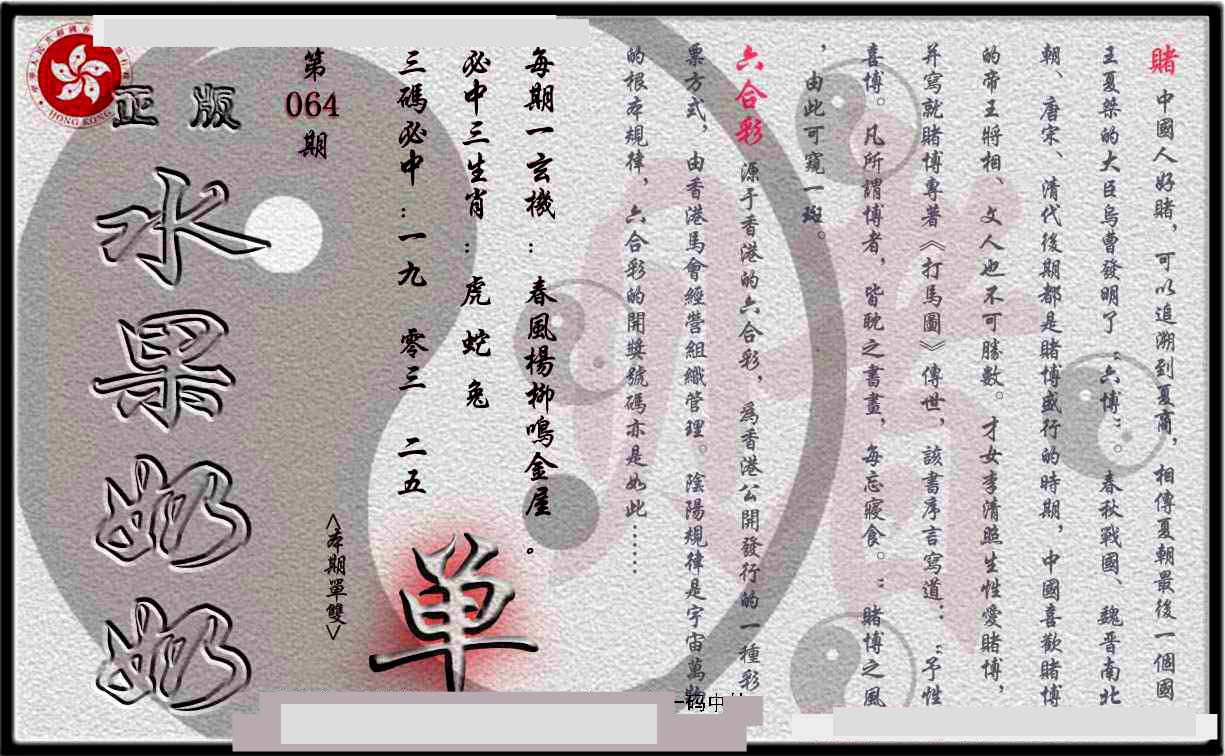 賭 中國人好賭，可以追溯到夏商，相傳夏朝最後一個國
王夏桀的大臣烏曹發明了“六博”。春秋戰國、魏晋南北
朝、唐宋、清代後期都是賭博盛行的時期，中國喜歡賭博
的帝王將相、文人也不可勝數。才女李清照生性愛賭博，
并寫就賭博專著《打馬圖》傳世，該書序言寫道：“予性
喜博。凡所謂博者，皆耽之書畫，每忘寢食。”賭博之風
，由此可窺一斑。
六合彩 源于香港的六合彩，為香港公開發行的一種彩
票方式，由香港馬會經營組織管理。陰陽規律是宇宙萬物
的根本規律，六合彩的開獎號碼亦是如此……
每期一玄機：春風楊柳鳴金屋。
必中三生肖：虎 蛇 兔
三碼必中：一九 零三 二五
单
<本期單雙>
第
064
期
正版
水果奶奶
HONG KONG
一码中